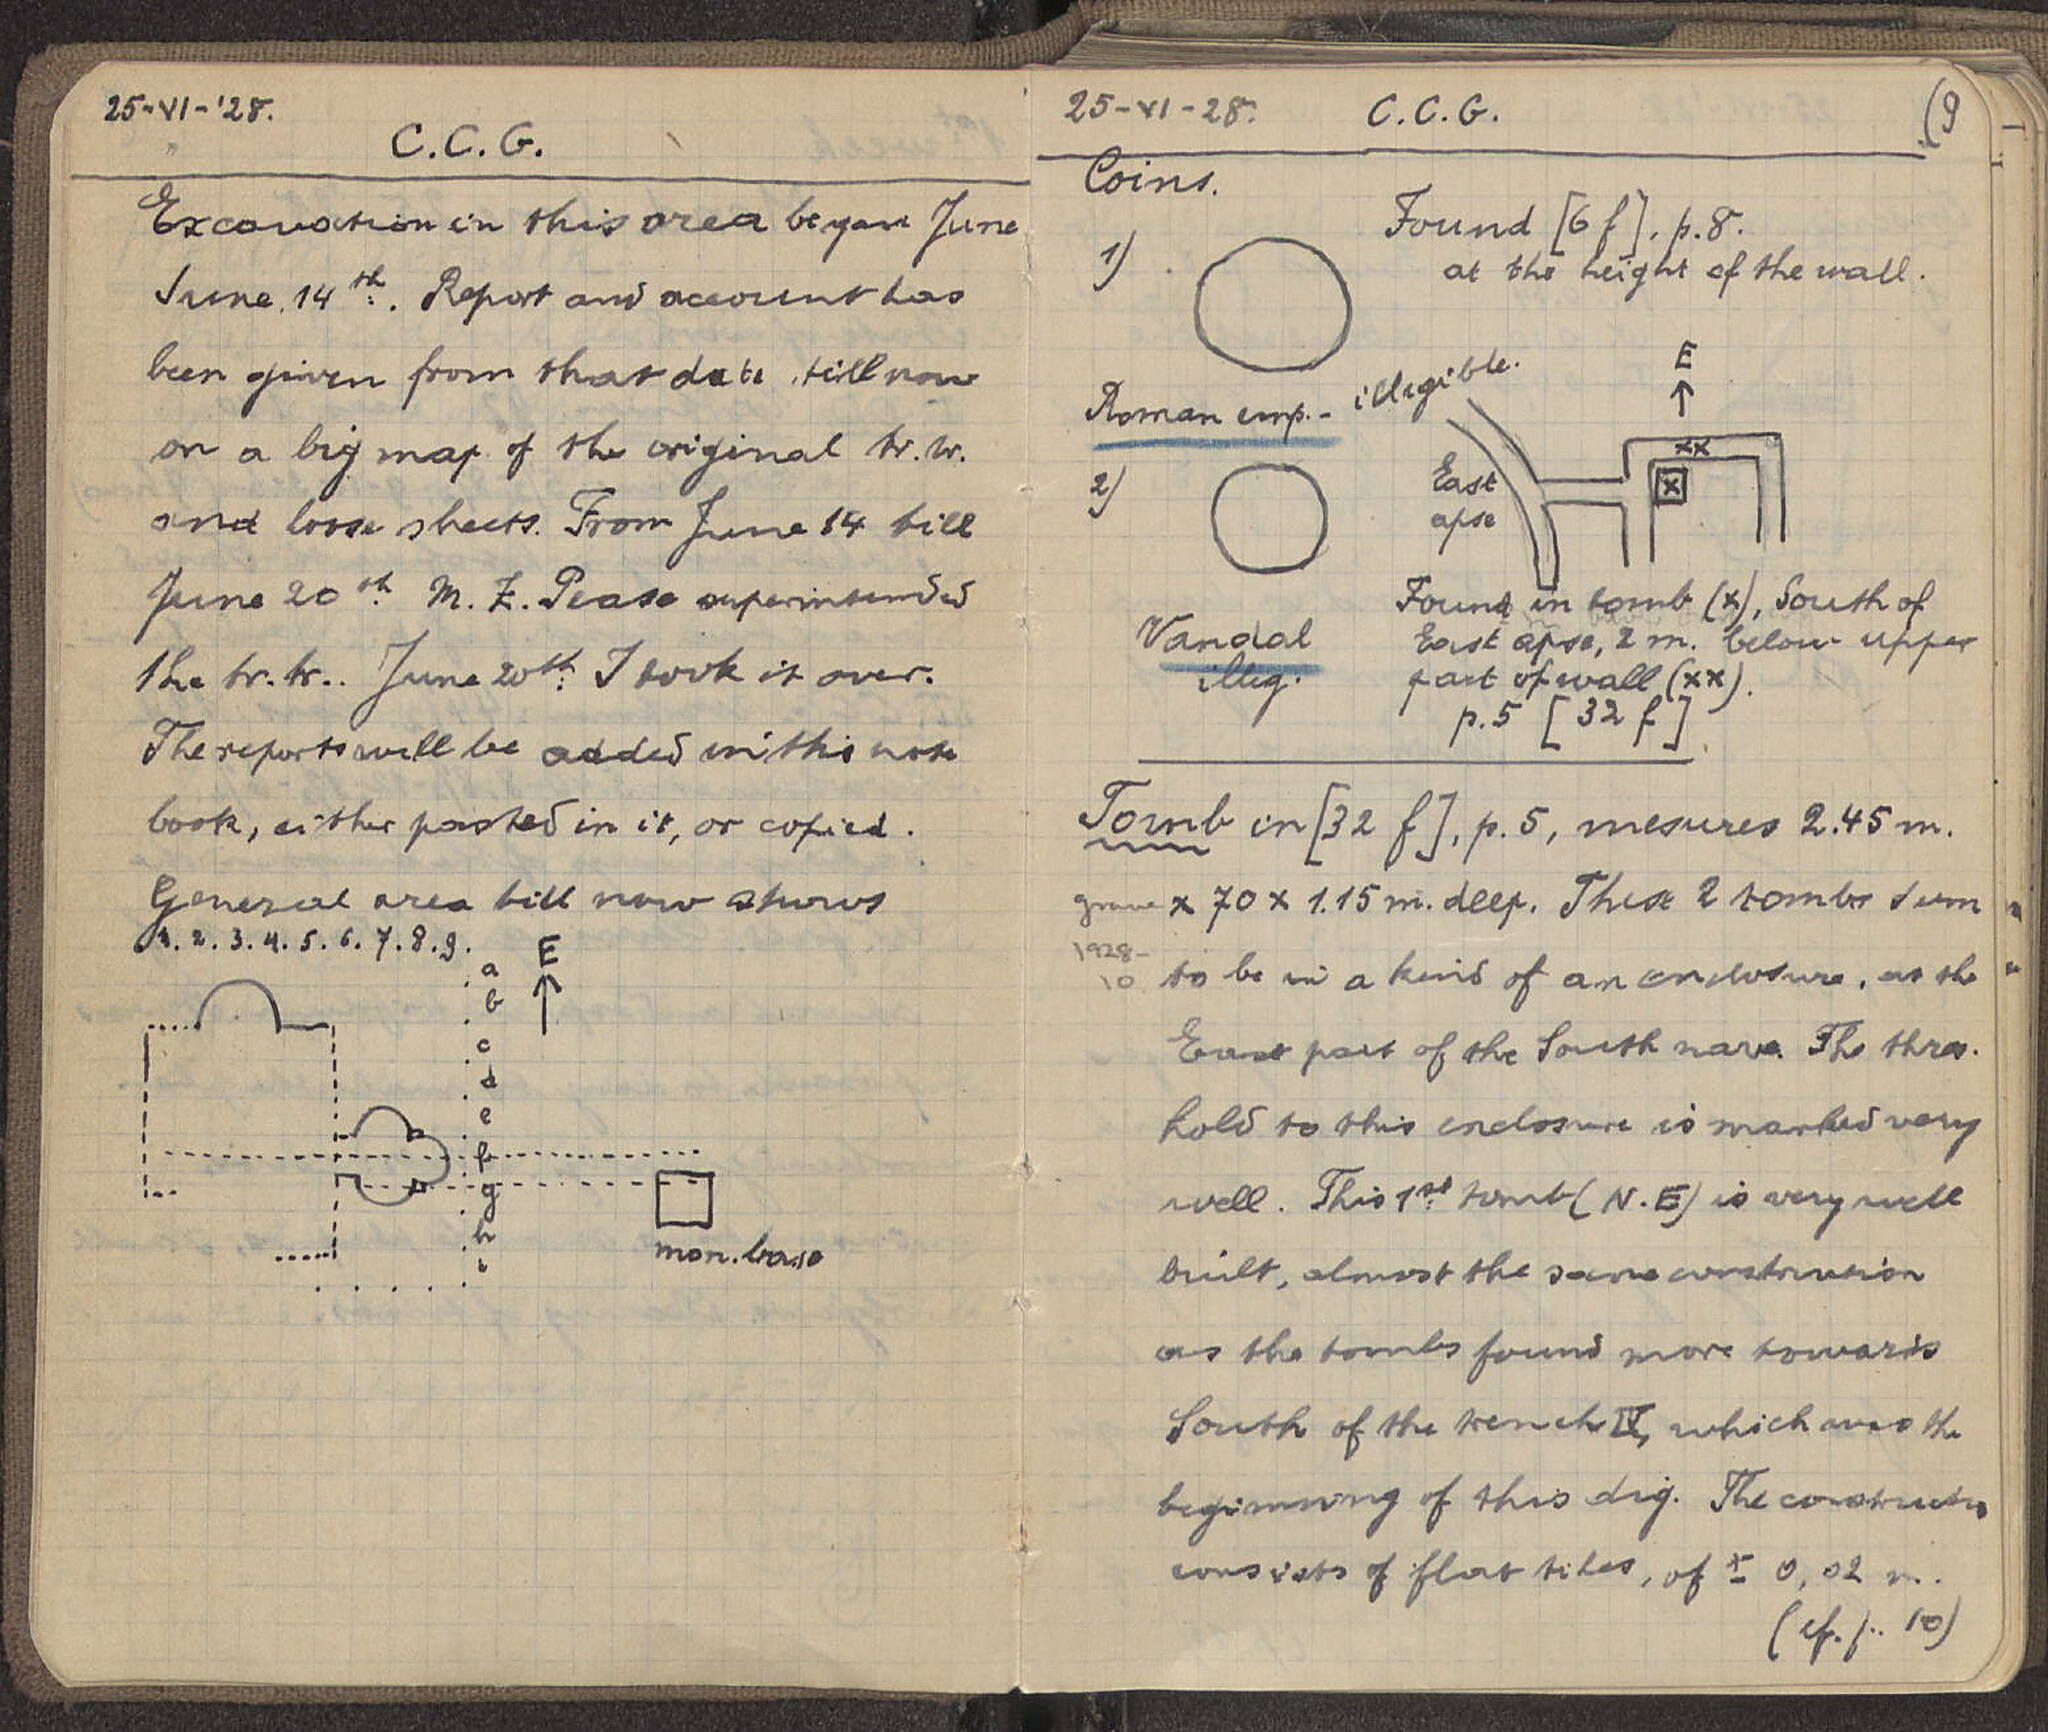 25-VI-'28.
C.C.G.
Excavation in this area began June
June 14th. Report and account has
been given from that date till now
on a big map of the original tr. tr.
and loose sheets. From June 14 till
June 20th M. Z. Pease superintended
the tr. tr.. June 20th I took it over.
The reports will be added in this note
book, either pasted in it, or copied.
General area till now shows
1. 2. 3. 4. 5. 6. 7. 8. 9.
E
a
b
c
d
e
f
g
h
i
mon. base
25-VI-28. C.C.G. (9
Coins.
1)
Found [6 f], p. 8.
at the height of the wall.
Roman emp. - illegible.
E
xx
x
2)
East
apse
Vandal
illeg.
Found in tomb (x), South of
East apse, 2 m. below upper
part of wall (xx).
p. 5 [32 f]
Tomb in [32 f], p. 5, mesures 2.45 m.
grave x 70 x 1.15 m. deep. These 2 tombs seem
1928-
10 to be in a kind of an enclosure, at the
East part of the South nave. The thres-
hold to this enclosure is marked very
well. This 1st tomb (N.E) is very well
built, almost the same construction
as the tombs found more towards
South of the trench IV, which was the
beginning of this dig. The construction
consists of flat tiles, of ± 0,02 m.
(cf. p. 10)